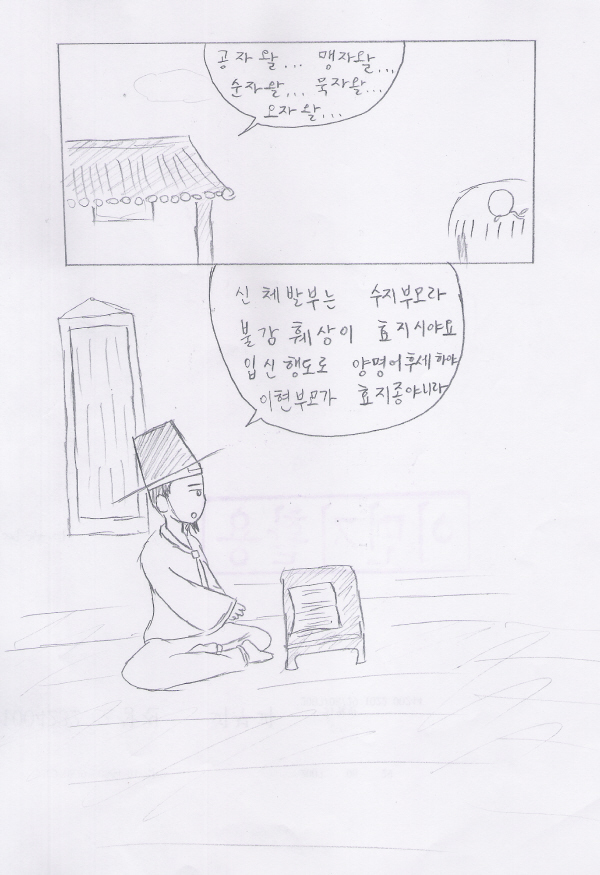 공자왈... 맹자왈...
순자왈... 묵자왈...
오자왈...
신체발부는 수지부모라
불감훼상이 효지시야요
입신행도로 양명어후세하야
이현부모가 효지종야니라